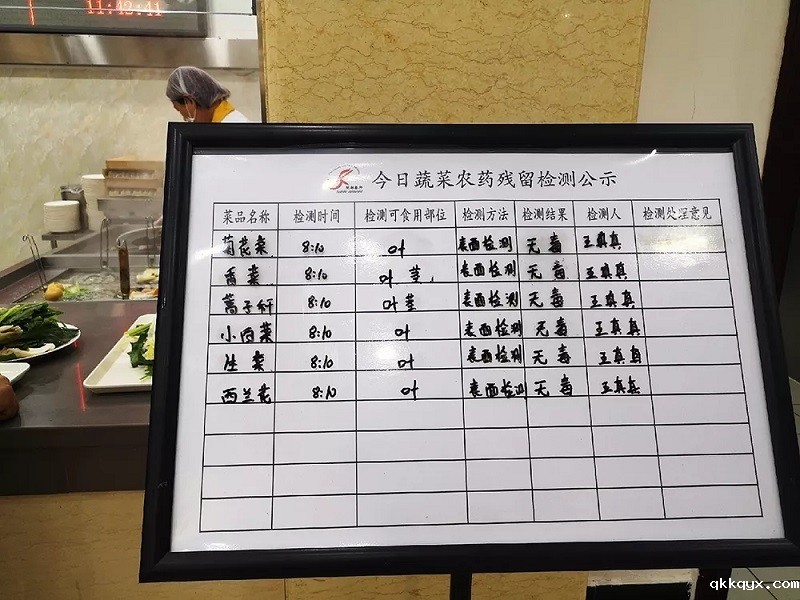 11:42:41
今日蔬菜农药残留检测公示
菜品名称 检测时间 检测可食用部位 检测方法 检测结果 检测人 检测处理意见
菊花菜 8:10 叶 表面检测 无毒 王真真
香菜 8:10 叶茎 表面检测 无毒 王真真
蒿子杆 8:10 叶茎 表面检测 无毒 王真真
小白菜 8:10 叶 表面检测 无毒 王真真
生菜 8:10 叶 表面检测 无毒 王真真
西兰花 8:10 叶 表面检测 无毒 王真真
qkkqyx.com